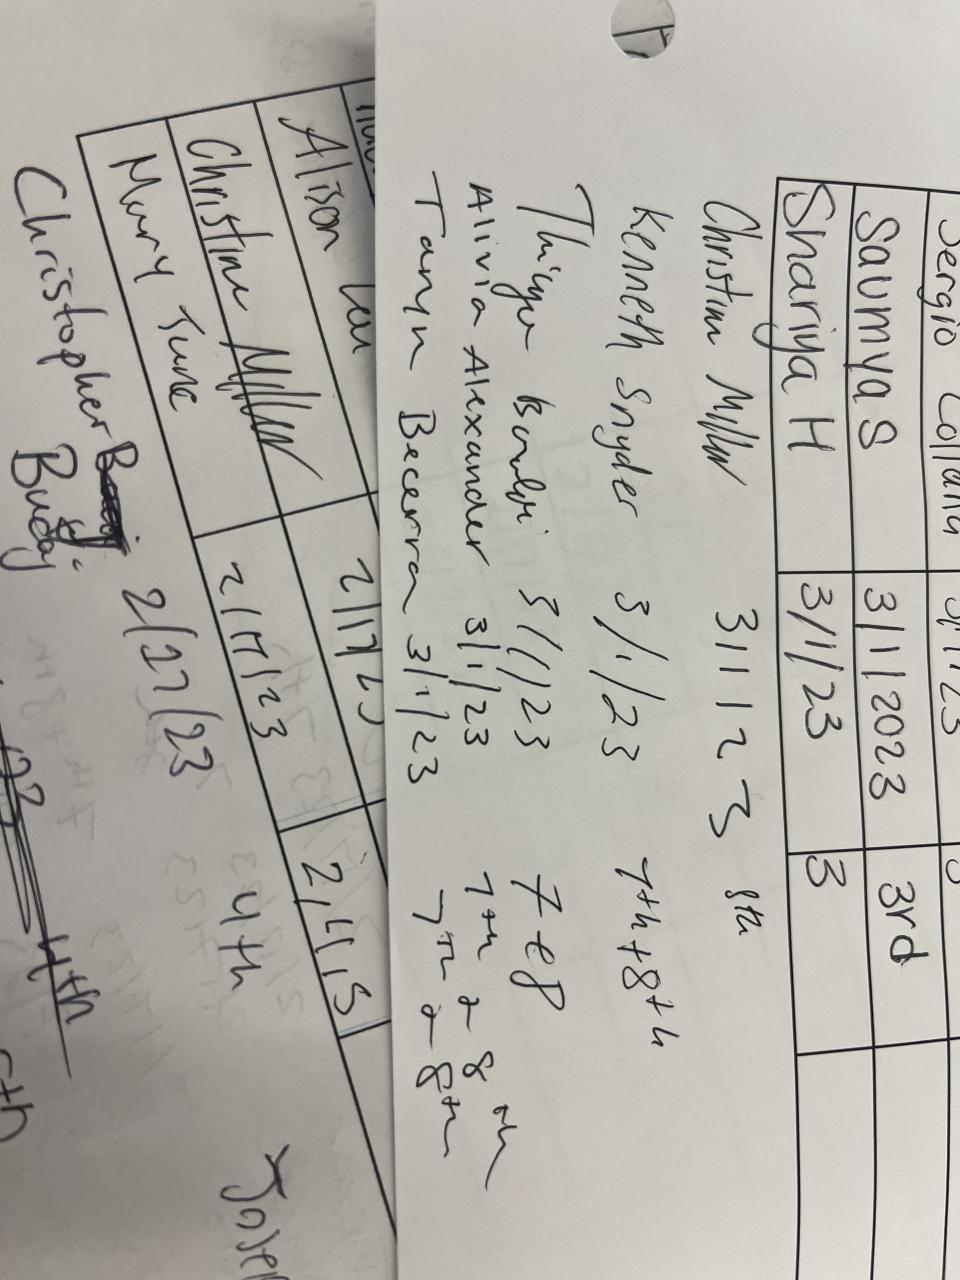 Sergio Collana 3/1/23
Saumya S 3/1/2023 3rd
Shariya H 3/1/23 3
Christine Miller 3/1/23 8th
Kenneth Snyder 3/1/23 7th + 8th
3/1/23 7 e 8
Alivia Alexander 3/1/23 7th & 8th
Tamyn Becerra 3/1/23 7th & 8th
Alison 2/17/23
Christine Miller 2/17/23 2,4,5
Mary June
4th
Christopher Buday 2/27/23
4th
5th